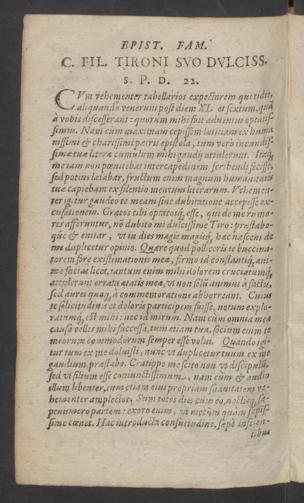 EPIST. FAM.
C. FIL. TIRONI SVO DVLCISS.
S. P. D. 22.
CVm vehementer tabellarios expectarem quotidie,
aliquando venerunt post diem XL. et sextum, quā
à vobis discesserant: quorum mihi fuit aduentus optatis-
simus. Nam cùm maximam cepissem lætitiam ex huma
nissimi & charissimi patris epistola, tum verò iucundis-
simæ tuæ literæ cumulum mihi gaudij attulerunt. Itaq;
me iam non pœnitebat intercapedinem scribendi fecisse,
sed potius lætabar, fructum enim magnum humanitatis
tuæ capiebam ex silentio mearum literarum. Vehemen-
ter igitur gaudeo te meam sine dubitatione accepisse ex-
cusationem. Gratos tibi optatosq; esse, qui de me rumo-
res afferuntur, nō dubito mi dulcissime Tiro: præstabo-
que & enitar, vt in dies magis magisq; hæc nascens de
me duplicetur opinio. Quare quod polliceris te buccina-
torem fore existimationis meæ, firmo id constantiq; ani-
mo facias licet, tantum enim mihi dolorem cruciatumq;
attulerunt errata ætatis meæ, vt non solū animus à factis,
sed aures quoq; à commemoratione abhorreant. Cuius
te solicitudinis et doloris participem fuisse, notum explo-
ratumq́; est mihi: nec id mirum. Nam cùm omnia mea
causa velles mihi successa, tum etiam tua, socium enim te
meorum commodorum semper esse volui. Quando igi-
tur tum ex me doluisti, nunc vt duplicetur tuum ex me
gaudium, præstabo. Cratippo me scito non vt discipulū,
sed vt filium esse coniunctissimum, nam cùm & audio
illum libenter, tum etiam eius propriam suauitatem ve-
hementer amplector. Sum totos dies cum eo, noctisq; sæ-
penumero partem: exoro enim, vt mecum quàm sæpis-
sime cœnet. Hac introducta consuetudine, sæpe inscien-
tibus